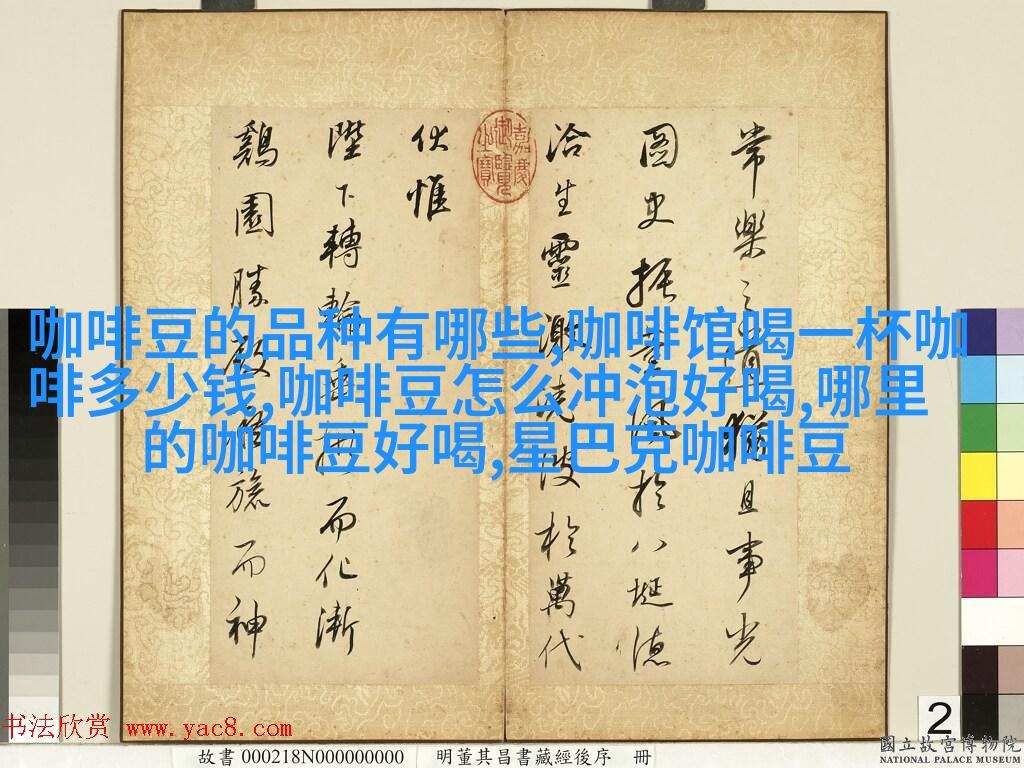 咖啡豆的品种有哪些,咖啡馆喝一杯咖
啡多少钱,咖啡豆怎么冲泡好喝,哪里
的咖啡豆好喝,星巴克咖啡豆
常樂之猶且事光
圖史振風於八埏德
洽生靈波於萬代
伏惟
陛下轉輪而化漸
鷄園勝殿旒而神
嘉慶御覽之寶
2
书法欣赏 www.yac8.com
故書 000218N000000000 明董其昌書藏經後序 冊
國立故宮博物院
NATIONAL PALACE MUSEUM